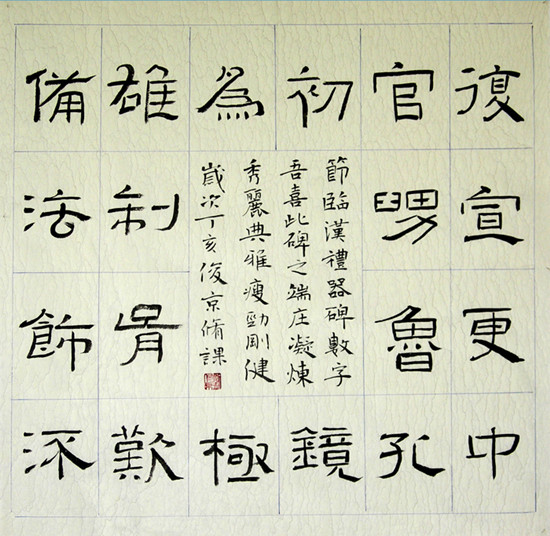 復宣更中
官舅魯孔
初鏡
為極
雄利歎
備法飾
節臨漢禮器碑數字
吾喜此碑之端庄凝煉
秀麗典雅瘦勁剛健
歲次丁亥俊京脩課